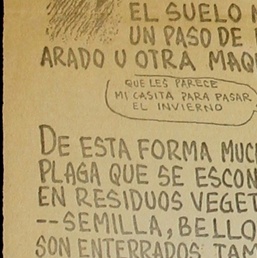 EL SUELO
UN PASO DE
ARADO U OTRA
QUE LES PARECE
MI CASITA PARA PASAR
EL INVIERNO
DE ESTA FORMA
PLAGA QUE SE
EN RESIDUOS
--SEMILLA,
SON ENTERRADOS